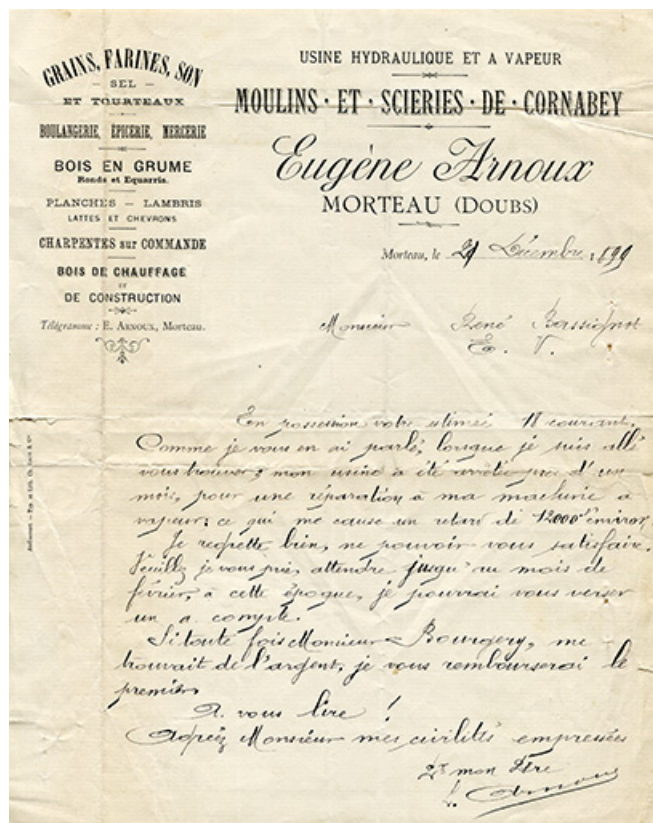 GRAINS, FARINES, SON
— SEL —
ET TOURTEAUX
BOULANGERIE, ÉPICERIE, MERCERIE
BOIS EN GRUME
Ronds et Equarris.
PLANCHES — LAMBRIS
LATTES ET CHEVRONS
CHARPENTES sur COMMANDE
BOIS DE CHAUFFAGE
ET
DE CONSTRUCTION
Télégramme : E. ARNOUX, Morteau.
USINE HYDRAULIQUE ET A VAPEUR
MOULINS · ET · SCIERIES · DE · CORNABEY
Eugène Arnoux
MORTEAU (DOUBS)
Morteau, le 21 Décembre 1899
Monsieur René Bassignot
E. V.
En possession votre estimée 18 courant.
Comme je vous en ai parlé, lorsque je suis allé
vous trouver; mon usine a été arrêtée près d'un
mois, pour une réparation à ma machine à
vapeur; ce qui me cause un retard de 12000 environ
Je regrette bien, ne pouvoir vous satisfaire.
Veuillez je vous prie, attendre jusqu'au mois de
février, à cette époque, je pourrai vous verser
un a. compte.
Si toute fois Monsieur Bourgery, me
trouvait de l'argent, je vous rembourserai le
premier.
A vous lire !
Agréez Monsieur mes civilités empressées
Arnoux